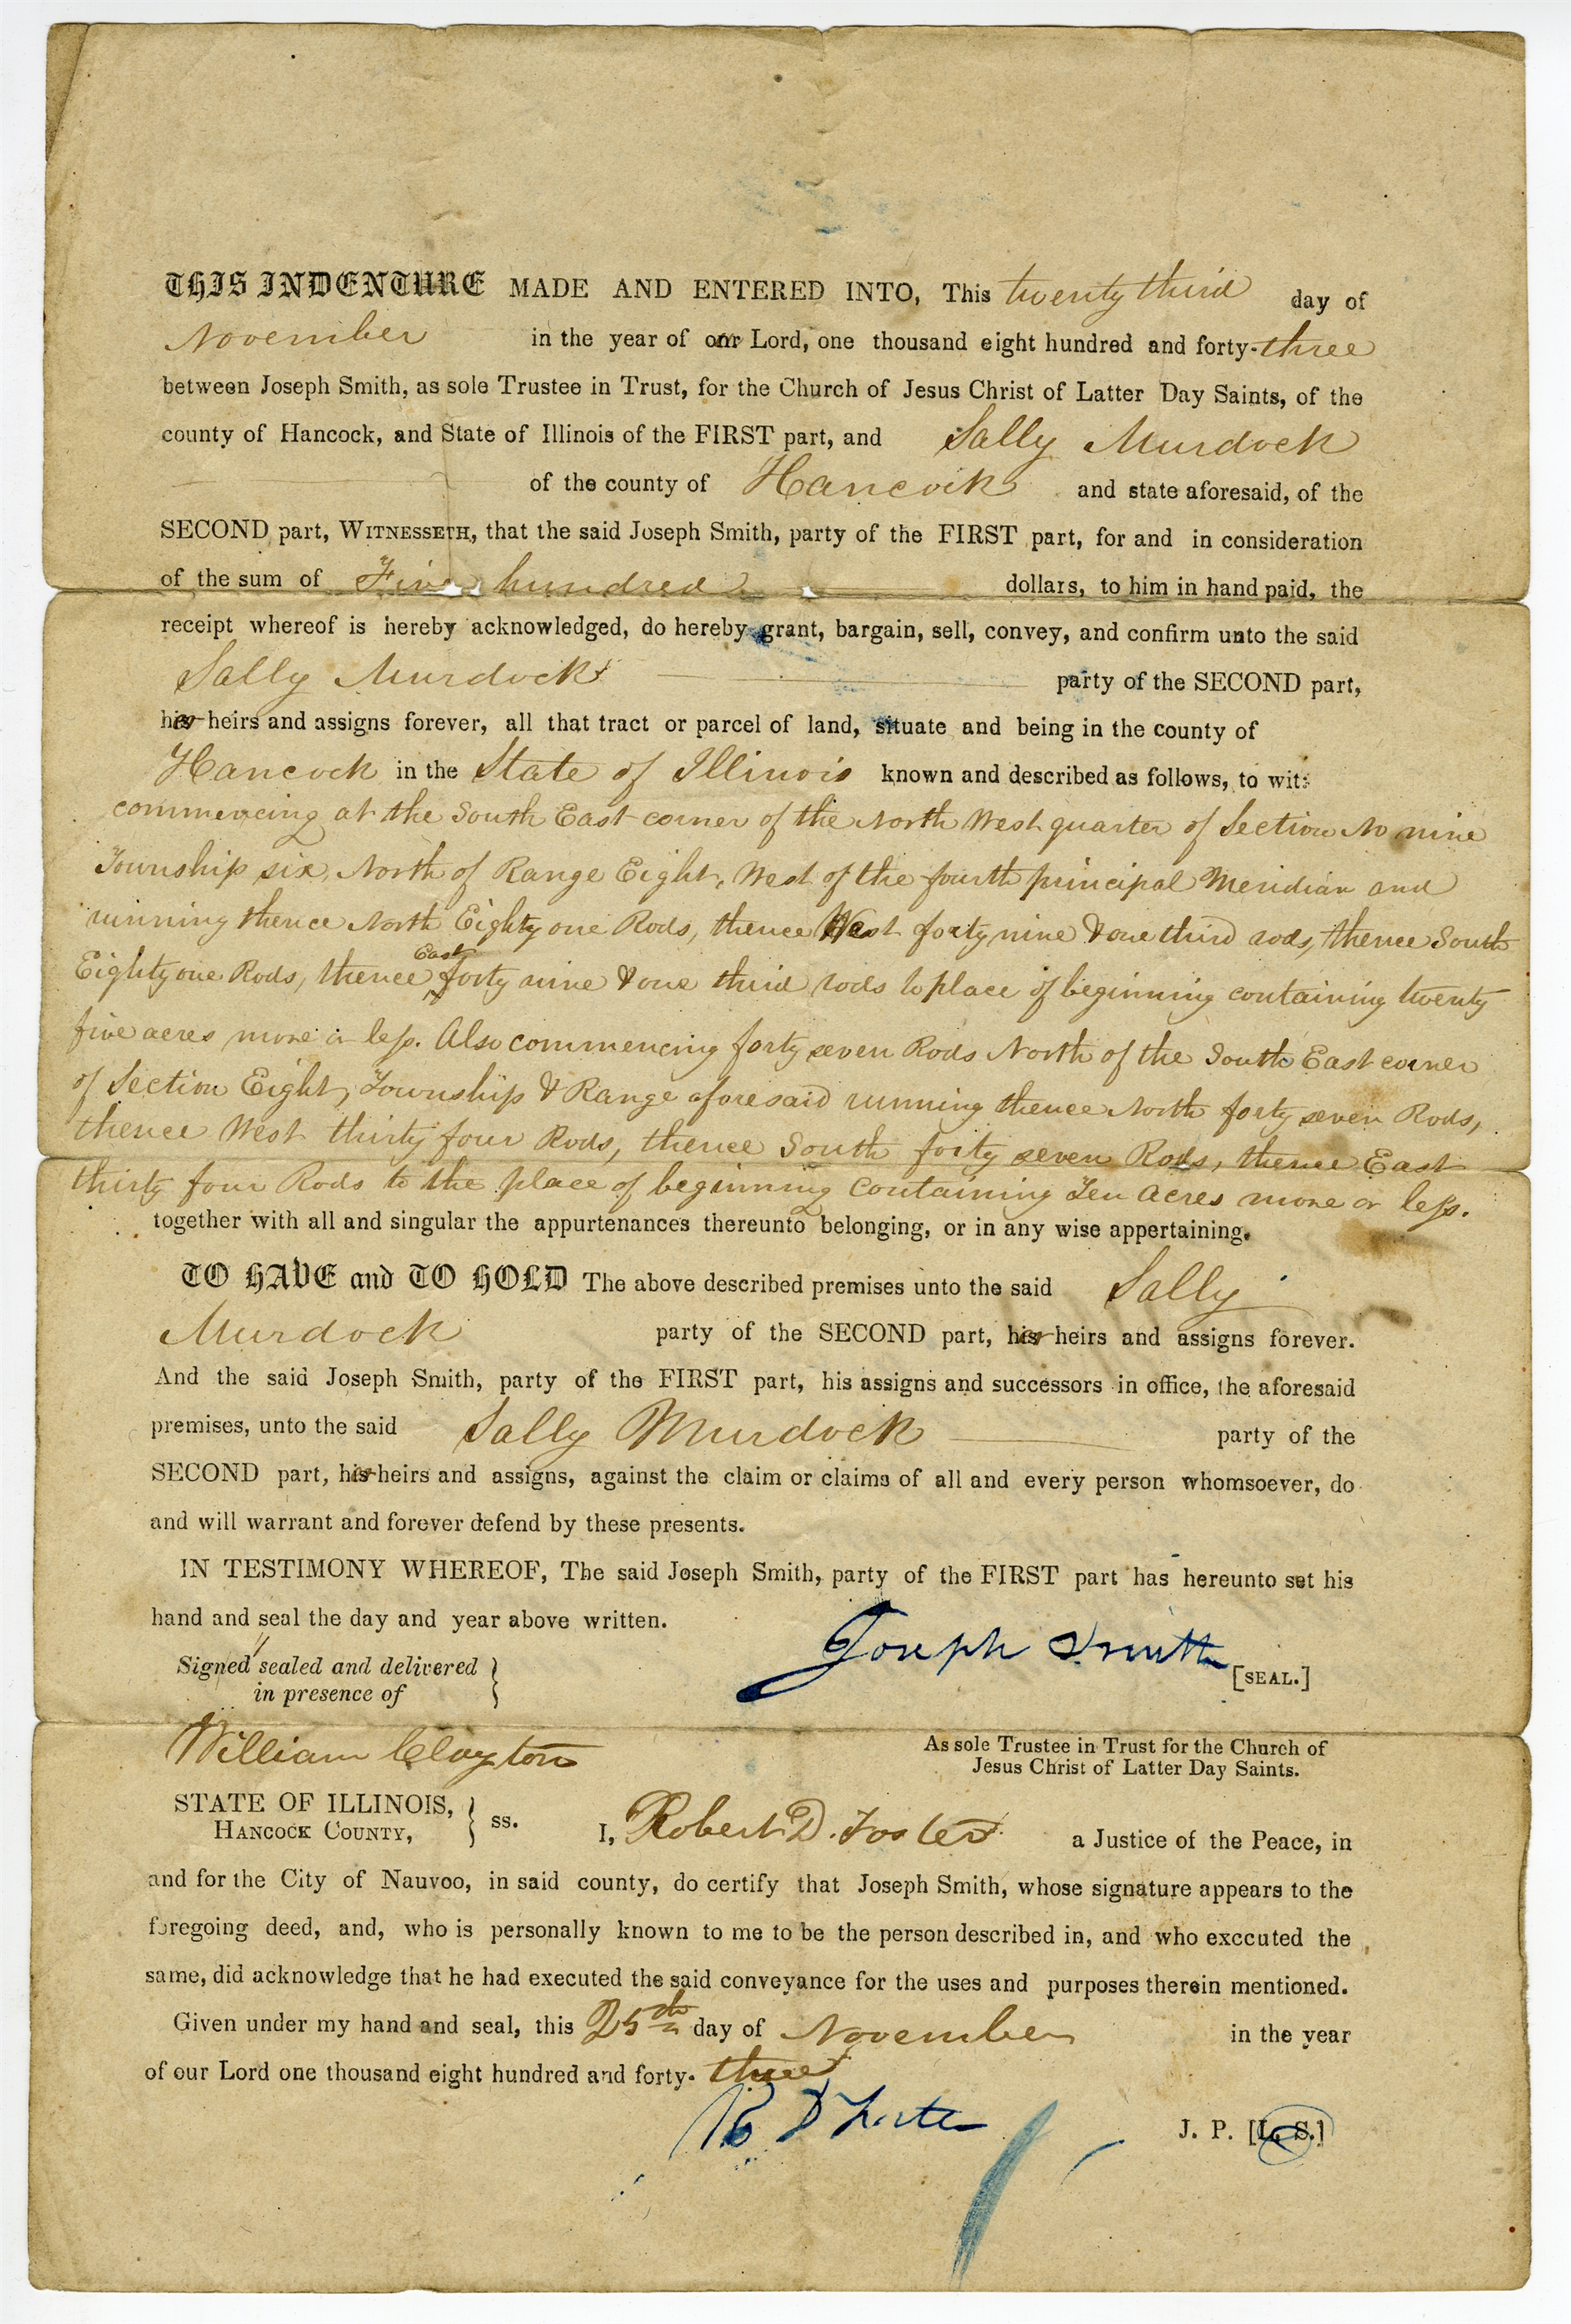 THIS INDENTURE MADE AND ENTERED INTO, This twenty third day of
November in the year of our Lord, one thousand eight hundred and forty-three
between Joseph Smith, as sole Trustee in Trust, for the Church of Jesus Christ of Latter Day Saints, of the
county of Hancock, and State of Illinois of the FIRST part, and Sally Murdock
of the county of Hancock and state aforesaid, of the
SECOND part, WITNESSETH, that the said Joseph Smith, party of the FIRST part, for and in consideration
of the sum of Five hundred dollars, to him in hand paid, the
receipt whereof is hereby acknowledged, do hereby grant, bargain, sell, convey, and confirm unto the said
Sally Murdock party of the SECOND part,
her heirs and assigns forever, all that tract or parcel of land, situate and being in the county of
Hancock in the State of Illinois known and described as follows, to wit:
commencing at the South East corner of the North West quarter of Section No nine
Township six, North of Range Eight, West of the fourth principal Meridian and
running thence North Eighty one Rods, thence West forty nine & one third rods, thence South
Eighty one Rods, thence East forty nine & one third rods to place of beginning containing twenty
five acres more or less. Also commencing forty seven Rods North of the South East corner
of Section Eight, Township & Range aforesaid running thence North forty seven Rods,
thence West thirty four Rods, thence South forty seven Rods, thence East
thirty four Rods to the place of beginning containing Ten Acres more or less.
together with all and singular the appurtenances thereunto belonging, or in any wise appertaining.
TO HAVE and TO HOLD The above described premises unto the said Sally
Murdock party of the SECOND part, her heirs and assigns forever.
And the said Joseph Smith, party of the FIRST part, his assigns and successors in office, the aforesaid
premises, unto the said Sally Murdock party of the
SECOND part, her heirs and assigns, against the claim or claims of all and every person whomsoever, do
and will warrant and forever defend by these presents.
IN TESTIMONY WHEREOF, The said Joseph Smith, party of the FIRST part has hereunto set his
hand and seal the day and year above written.
Joseph Smith [SEAL.]
Signed sealed and delivered
in presence of
William Clayton
As sole Trustee in Trust for the Church of
Jesus Christ of Latter Day Saints.
STATE OF ILLINOIS,
HANCOCK COUNTY, } ss. I, Robert D. Foster a Justice of the Peace, in
and for the City of Nauvoo, in said county, do certify that Joseph Smith, whose signature appears to the
foregoing deed, and, who is personally known to me to be the person described in, and who exccuted the
same, did acknowledge that he had executed the said conveyance for the uses and purposes therein mentioned.
Given under my hand and seal, this 25th day of November in the year
of our Lord one thousand eight hundred and forty-three
R D Foster J. P. [L. S.]